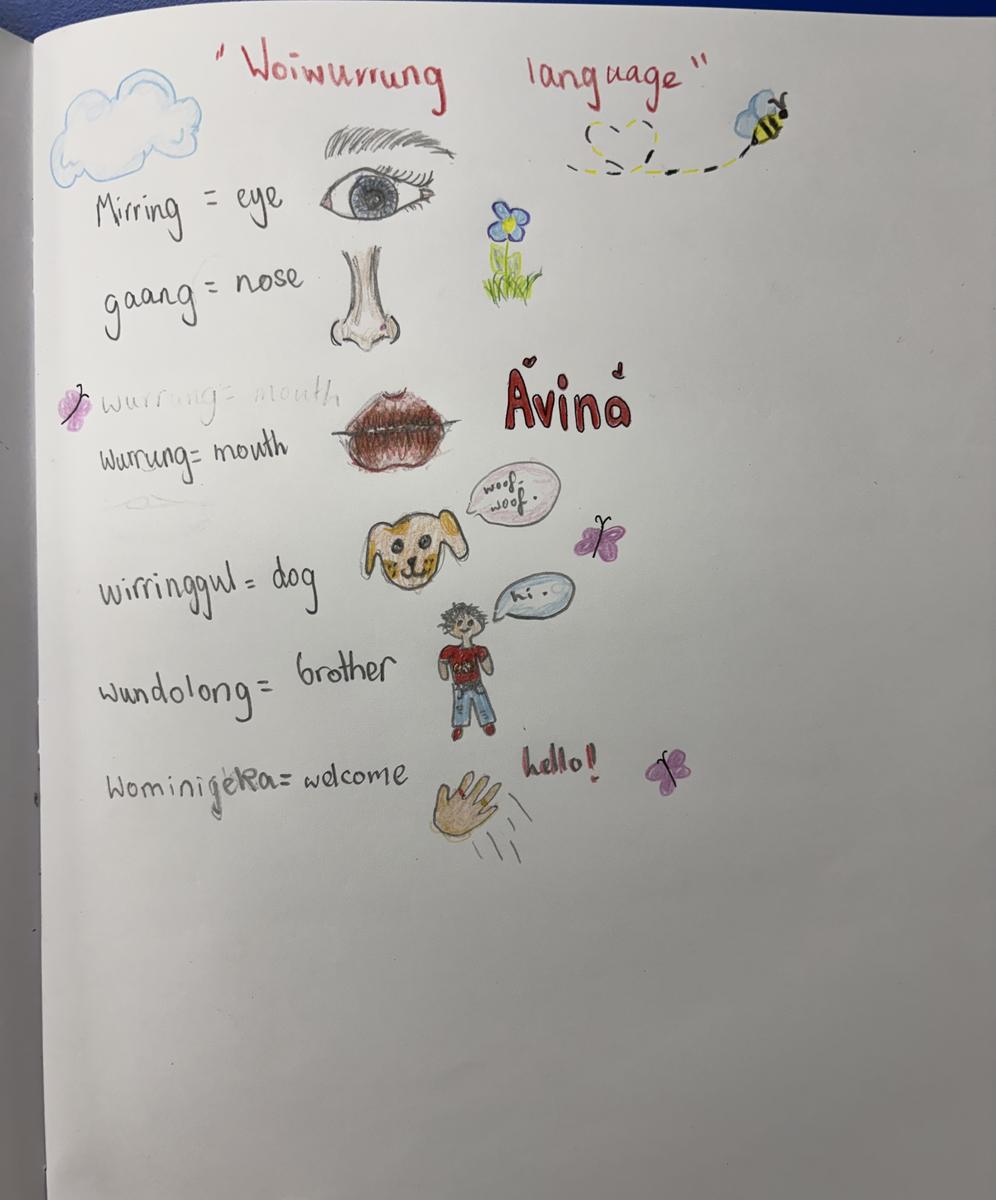 "Woiwurrung language"
Mirring = eye
gaang = nose
wurrung = mouth
Avina
wurrung = mouth
woof.
woof.
wirringgul = dog
hi.
wundolong = brother
Wominigeka = welcome
hello!